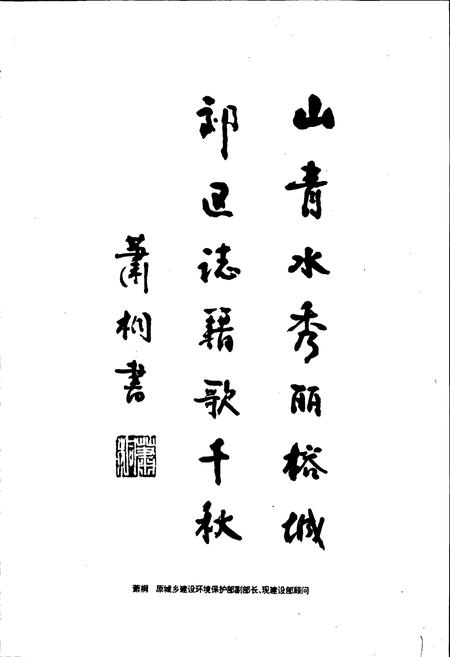 山青水秀丽榕城
郊邑誌籍歌千秋
蕭桐書
蕭桐
萧桐 原城乡建设环境保护部副部长、现建设部顾问